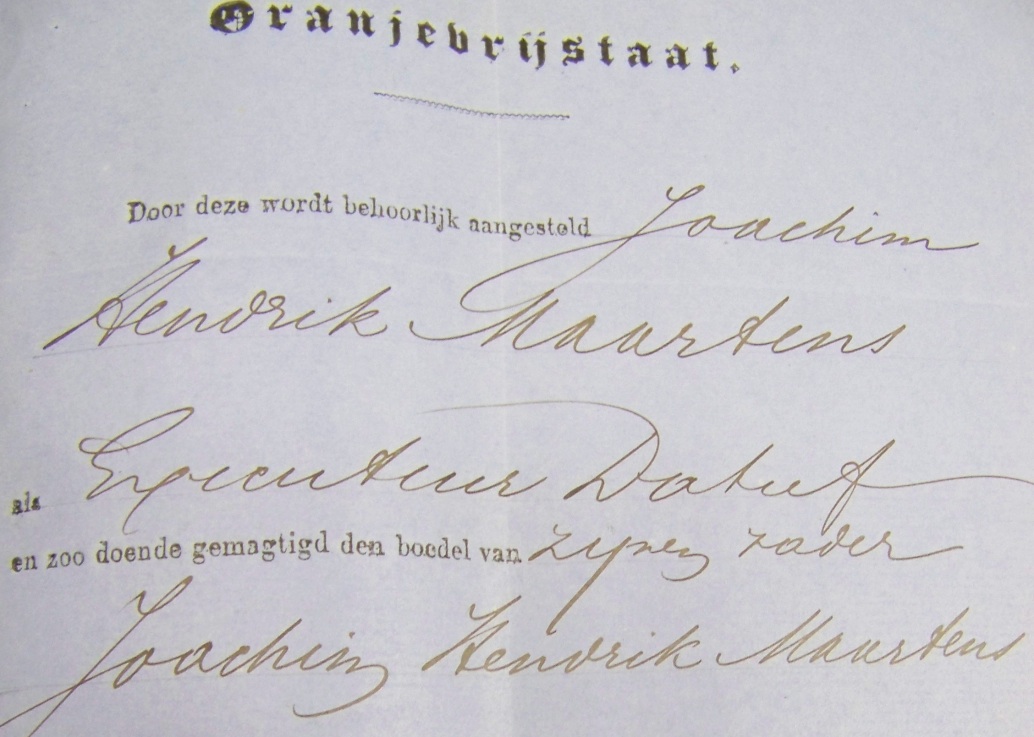 Oranjevrijstaat.
Door deze wordt behoorlijk aangesteld Joachim
Hendrik Maartens
als Executeur Datief
en zoo doende gemagtigd den boedel van zynen vader
Joachim Hendrik Maartens